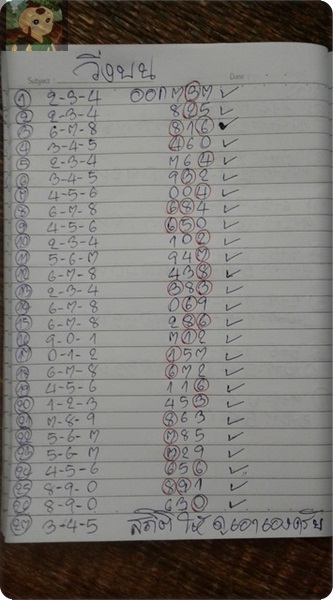 วิ่งบน
Subject : Date :
1 2-3-4 ออก 737 ✓
2 2-3-4 825 ✓
3 6-7-8 816 ✓
4 3-4-5 460 ✓
5 2-3-4 764 ✓
6 3-4-5 932 ✓
7 4-5-6 004 ✓
8 6-7-8 684 ✓
9 4-5-6 650 ✓
10 2-3-4 102 ✓
11 5-6-7 947 ✓
12 6-7-8 438 ✓
13 2-3-4 383 ✓
14 6-7-8 069 ✓
15 6-7-8 286 ✓
16 9-0-1 712 ✓
17 0-1-2 157 ✓
18 6-7-8 672 ✓
19 4-5-6 116 ✓
20 1-2-3 453 ✓
21 7-8-9 863 ✓
22 5-6-7 785 ✓
23 5-6-7 729 ✓
24 4-5-6 656 ✓
25 8-9-0 891 ✓
26 8-9-0 630 ✓
27 3-4-5 สถิติ ให้ ดูเอาเองครับ